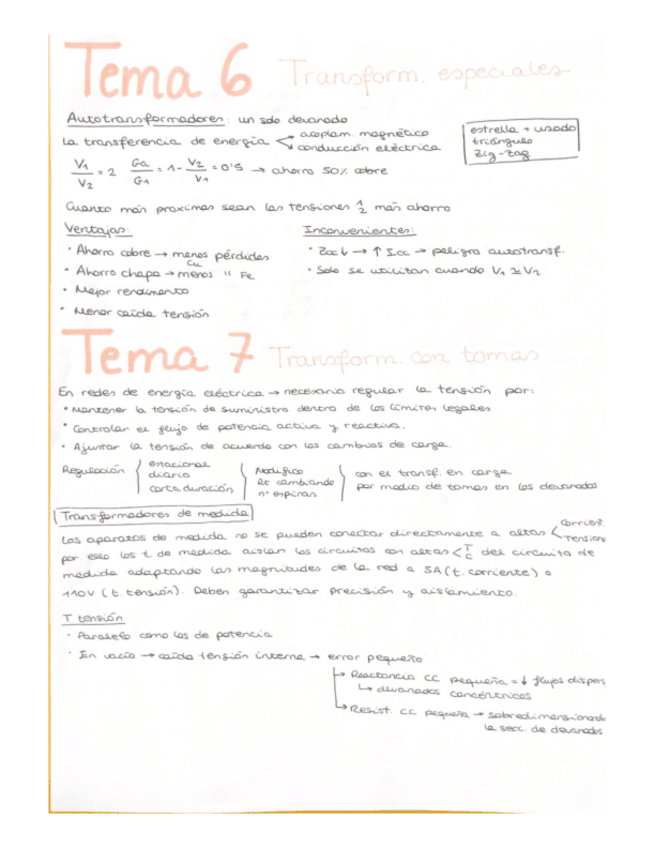 Tema 6 Transform. especiales
Autotransformadores: un solo devanado
La transferencia de energía < acoplam. magnético
conducción eléctrica
estrella + usado
triángulo
Zig-zag
V1/V2 = 2 Ga/G1 = 1 - V2/V1 = 0'5 → ahorro 50% cobre
Cuanto más proximas sean las tensiones 1/2 más ahorro
Ventajas:
· Ahorro cobre → menos pérdidas Cu
· Ahorro chapa → menos " Fe
· Mejor rendimento
· Menor caída tensión
Inconvenientes:
· Zcc↓ → ↑ Icc → peligro autotransf.
· Solo se utilizan cuando V1 ≃ V2
Tema 7 Transform. con tomas
En redes de energía eléctrica → necesario regular la tensión por:
· Mantener la tensión de suministro dentro de los límites legales
· Controlar el flujo de potencia activa y reactiva.
· Ajustar la tensión de acuerdo con los cambios de carga.
Regulación { estacional
diario
corta duración
{ Modifico
Rt cambiando
nº espiras
{ con el transf. en carga
por medio de tomas en los devanados
Transformadores de medida
Los aparatos de medida no se pueden conectar directamente a altas < corrient.
tensione
por esto los t. de medida aislan los circuitos con altas < T
C del circuito de
medida adaptando las magnitudes de la red a 5A (t. corriente) o
110V (t. tensión). Deben garantizar precisión y aislamiento.
T tensión
· Paralelo como los de potencia
· En vacío → caída tensión interna → error pequeño
↳ Reactancia CC pequeña = ↓ flujos dispers
↳ devanados concéntricos
↳ Resist. CC pequeña → sobredimensionando
la secc. de devanados